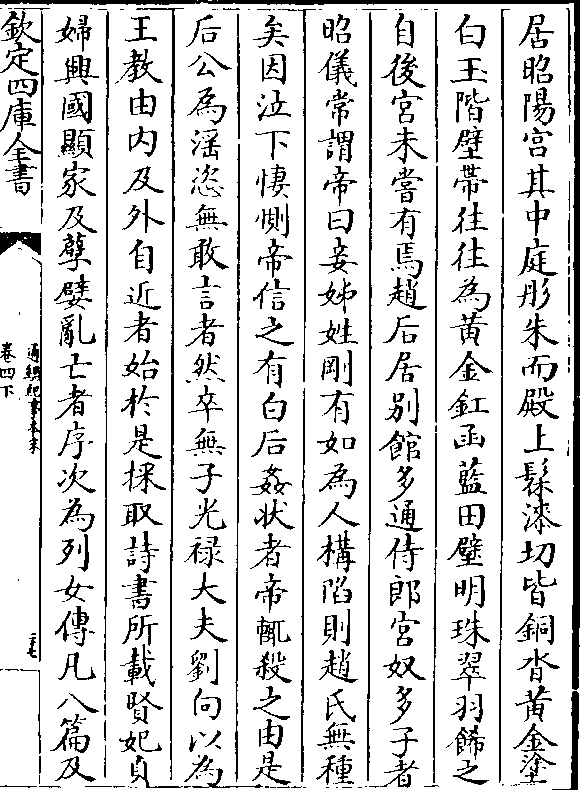 居昭陽宮其中庭彤朱而殿上髹漆切皆銅沓黄金塗
白玉階壁帶往往為黄金釭函藍田璧明珠翠羽飾之
自後宮未嘗有焉趙后居别館多通侍郎宮奴多子者
昭儀常謂帝曰妾姊姓剛有如為人構陷則趙氏無種
矣因泣下悽惻帝信之有白后姦状者帝輒殺之由是
后公為滛恣無敢言者然卒無子光禄大夫劉向以為
王教由内及外自近者始於是採取詩書所載賢妃貞
婦興國顯家及孽嬖亂亡者序次為列女傳凡八篇及
欽定四庫全書
通鑑紀事本末
卷四下
二七